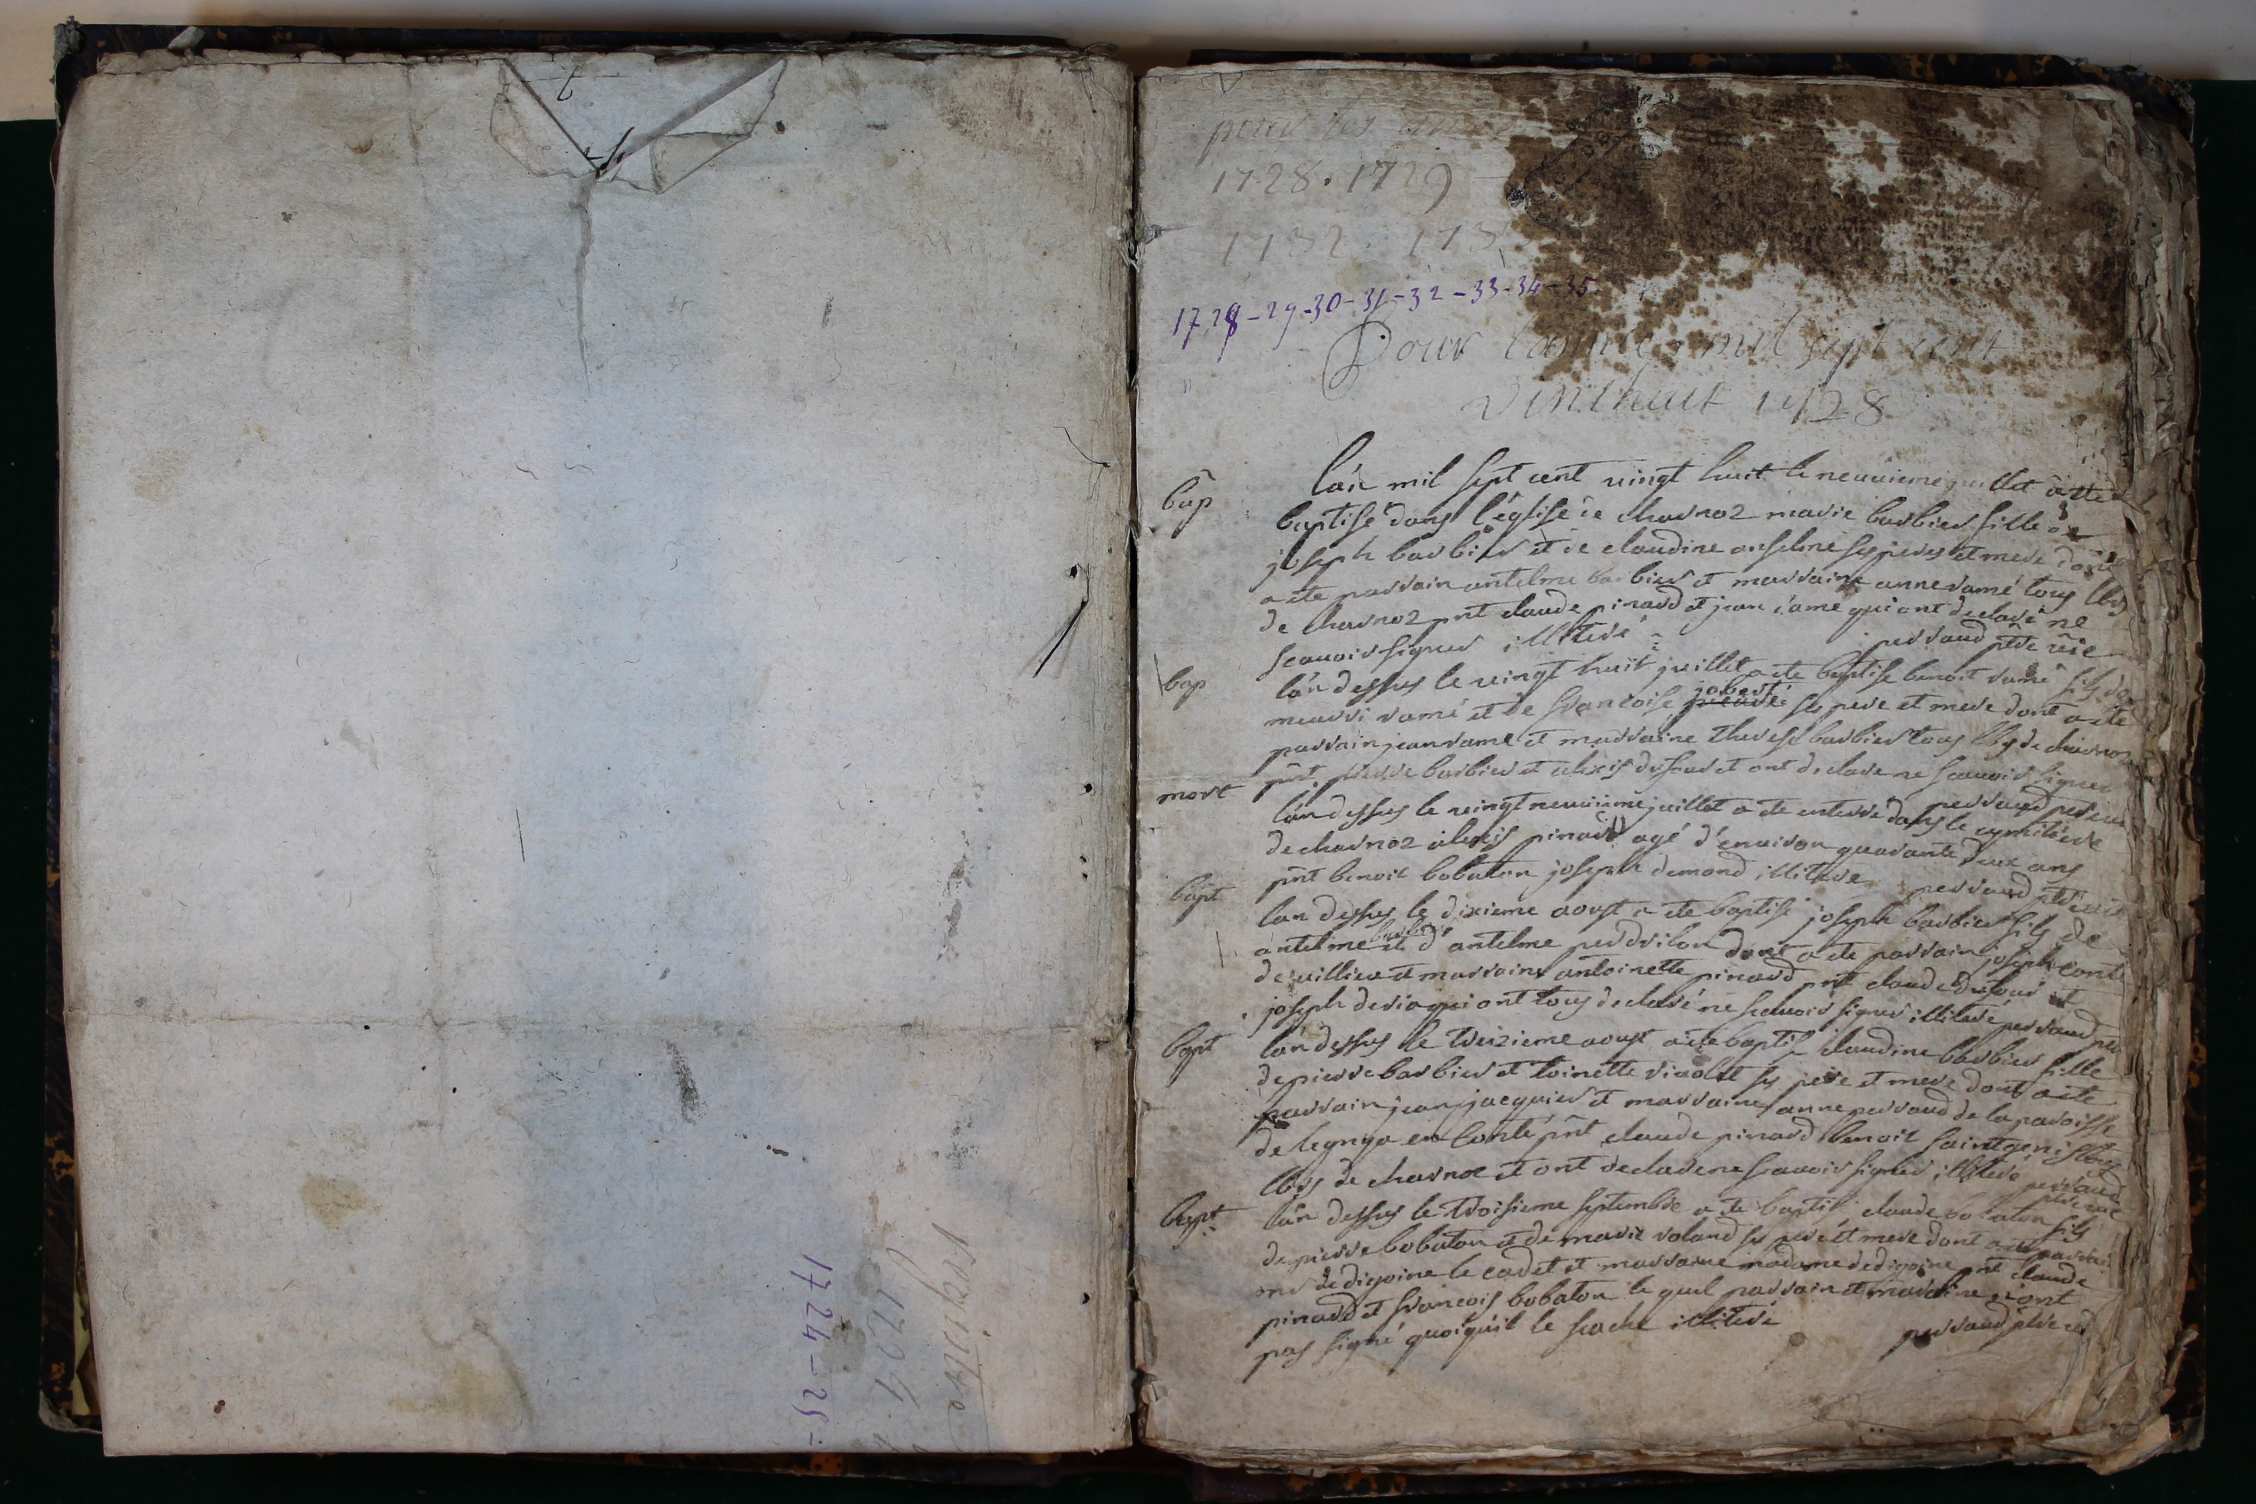 1724
1724-25-
pour les
1728. 1729
1732. 173
1728-29-30-31-32-33-34-35
Pour l'année mil sept cent
vinthuit 1728
bap
l'an mil sept cent vingt huit le neuvieme juillet a ete
baptisé dans l'église de charnoz marie barbier fille de
joseph barbier et de claudine anselme ses peres et mere dont
a ete parrain antelme barbier et marraine anne ramé tous
de charnoz pnt claude pinard et jean ramé qui ont declaré ne
scavoir signer illiteré perraud
bap
l'an dessus le vingt huit juillet a ete baptisé benoit ramé fils de
meurri ramé et de francoise jobert ses pere et mere dont a ete
parrain jean ramé et marraine therese barbier tous de charnoz
pnt pierre barbier et alexis dufour et ont declaré ne scavoir signer
perraud
mort
l'an dessus le vingt neuvieme juillet a ete enterré dans le cymitiere
de charnoz alexis pinard agé d'environ quarante deux ans
pnt benoit bobaton joseph demond illiteré perraud
bapt
l'an dessus le dixieme aoust a ete baptisé joseph barbier fils de
antelme barbier et d'antelme perdrilon dont a ete parrain joseph
de villieu et marraine antoinette pinard pnt claude dufour et
joseph qui ont tous declaré ne scavoir signer illiteré perraud
bapt
l'an dessus le treizieme aoust a ete baptisé claudine barbier fille
de pierre barbier et toinette violet ses pere et mere dont a ete
parrain jean jacquier et marraine anne perraud de la paroisse
de legnya en Conté pnt claude pinard benoit saintgenis tous
de charnoz et ont declaré ne scavoir signer illiteré perraud
bapt
l'an dessus le troisieme septembre a ete baptisé claude bobaton fils
de pierre bobaton et de marie roland ses pere et mere dont a ete parrain
mr de digoine le cadet et marraine madame de digoine pnt claude
pinard et francois bobaton le quel parrain et maraine n'ont
pas signé quoiqu'il le scache illiteré perraud